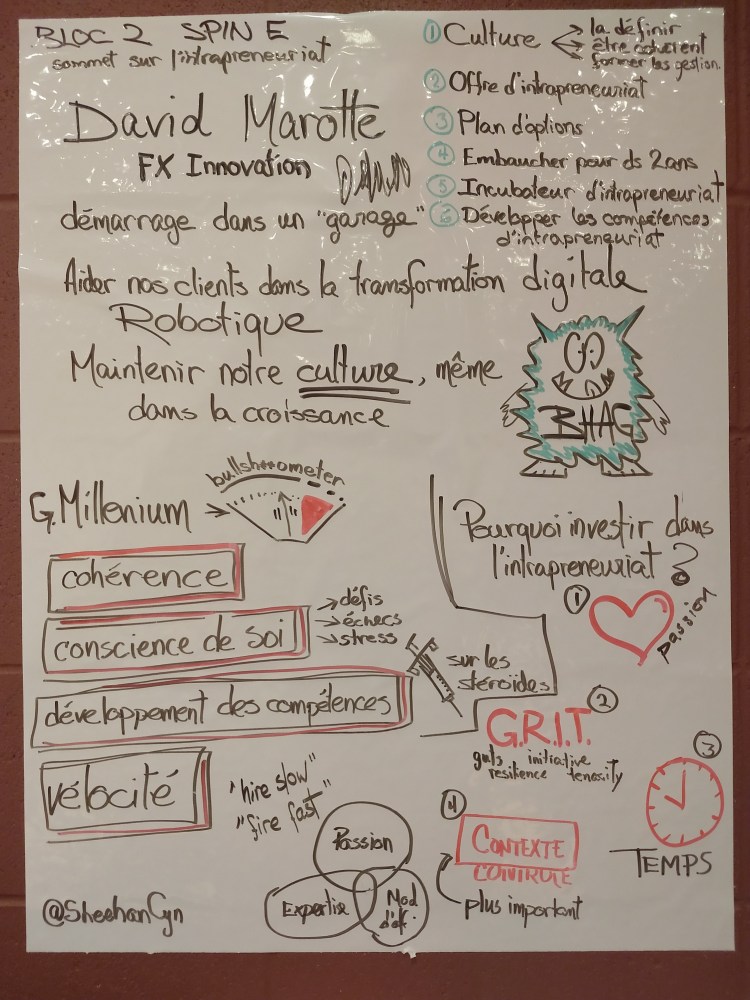 BLOC 2 SPIN E
sommet sur l'intrapreneuriat
David Marotte
FX Innovation
démarrage dans un "garage"
① Culture
la définir
être cohérent
former les gestion.
② Offre d'intrapreneuriat
③ Plan d'options
④ Embaucher pour ds 2 ans
⑤ Incubateur d'intrapreneuriat
⑥ Développer les compétences
d'intrapreneuriat
Aider nos clients dans la transformation digitale
Robotique
Maintenir notre culture, même
dans la croissance
BHAG
bullsh••ometer
G. Millenium
cohérence
conscience de soi
défis
échecs
stress
développement des compétences
sur les
stéroïdes
vélocité
"hire slow"
"fire fast"
Passion
Expertise
Mod
d'af.
@SheehanCyn
Pourquoi investir dans
l'intrapreneuriat ?
①
passion
②
G.R.I.T.
guts initiative
resilience tenacity
③
TEMPS
④
CONTEXTE
CONTROLE
plus important